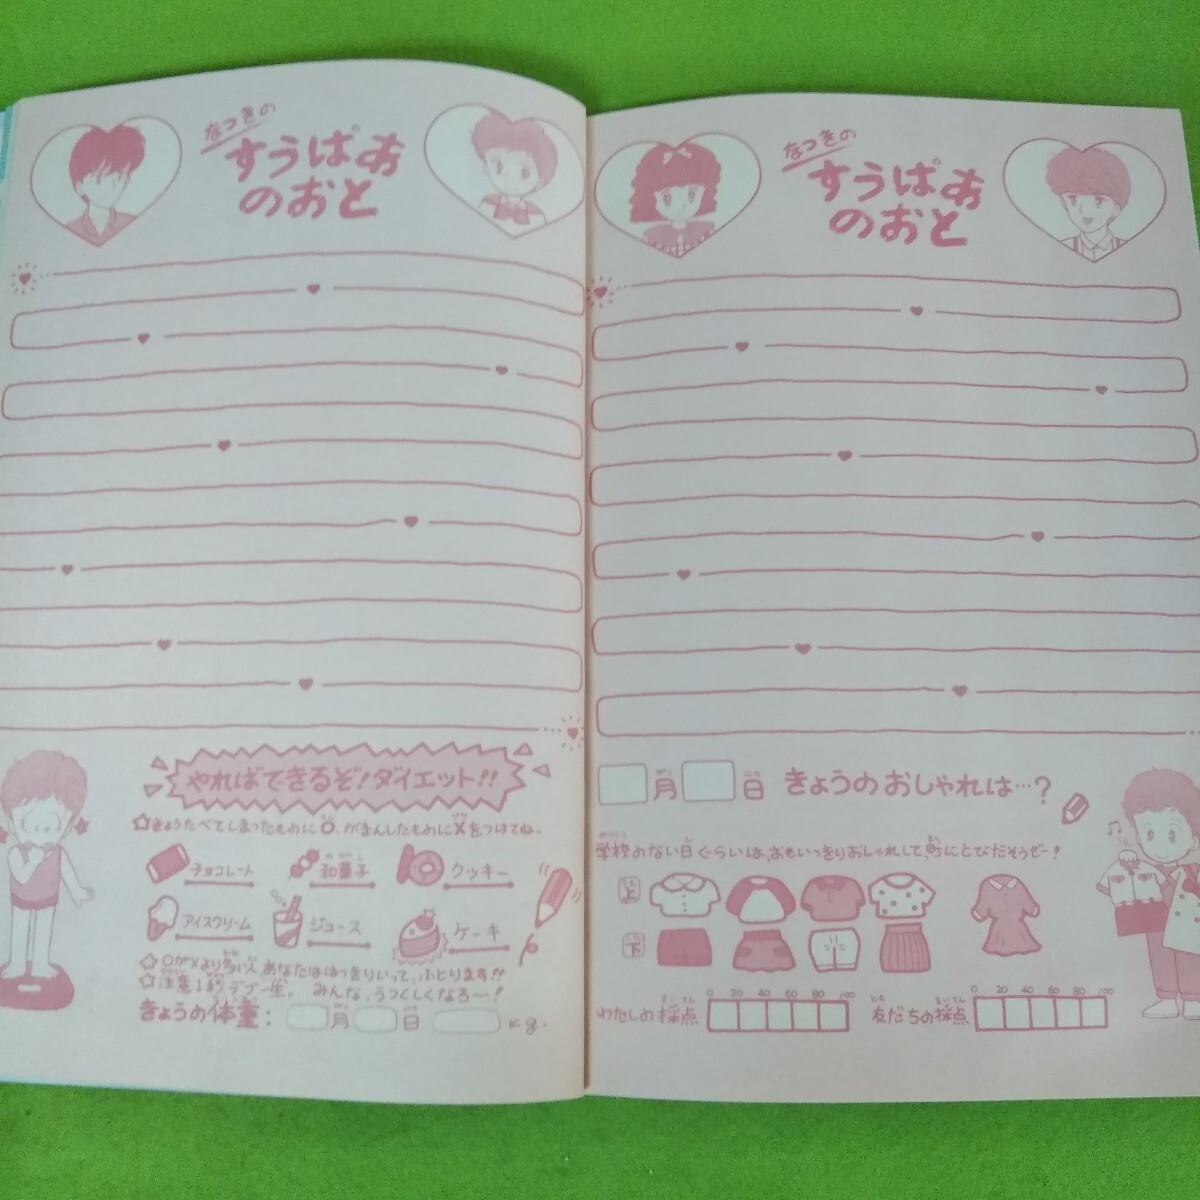 なつきの
すうぱあ
のおと
やればできるぞ!ダイエット!!
☆きょうたべてしまったものに○、がまんしたものに×をつけてね。
チョコレート
和菓子
クッキー
アイスクリーム
ジュース
ケーキ
☆○が×より多い人、あなたははっきりいって、ふとります!!
☆注意1秒デブ一生。 みんな、うつくしくなろ〜!
きょうの体重: 月 日 kg.
なつきの
すうぱあ
のおと
月 日 きょうのおしゃれは…?
学校のない日ぐらいは、おもいっきりおしゃれして、町にとびだそうぜー!
上
下
わたしの採点 0 20 40 60 80 100
友だちの採点 0 20 40 60 80 100